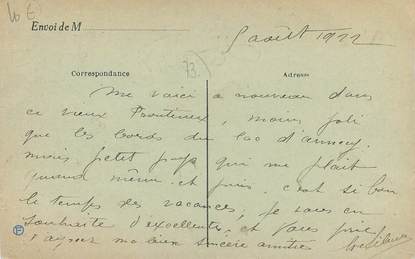 10 E
Envoi de M
5 août 1922
73.
Correspondance
Adresse
Me voici à nouveau dans
ce vieux moins joli
que les bords du lac d'annecy
mais petit pays qui me plaît
quand même. et puis c'est si bon
le temps des vacances, je vous en
souhaite d'excellentes et vous prie
d'agréer ma bien sincère amitiés